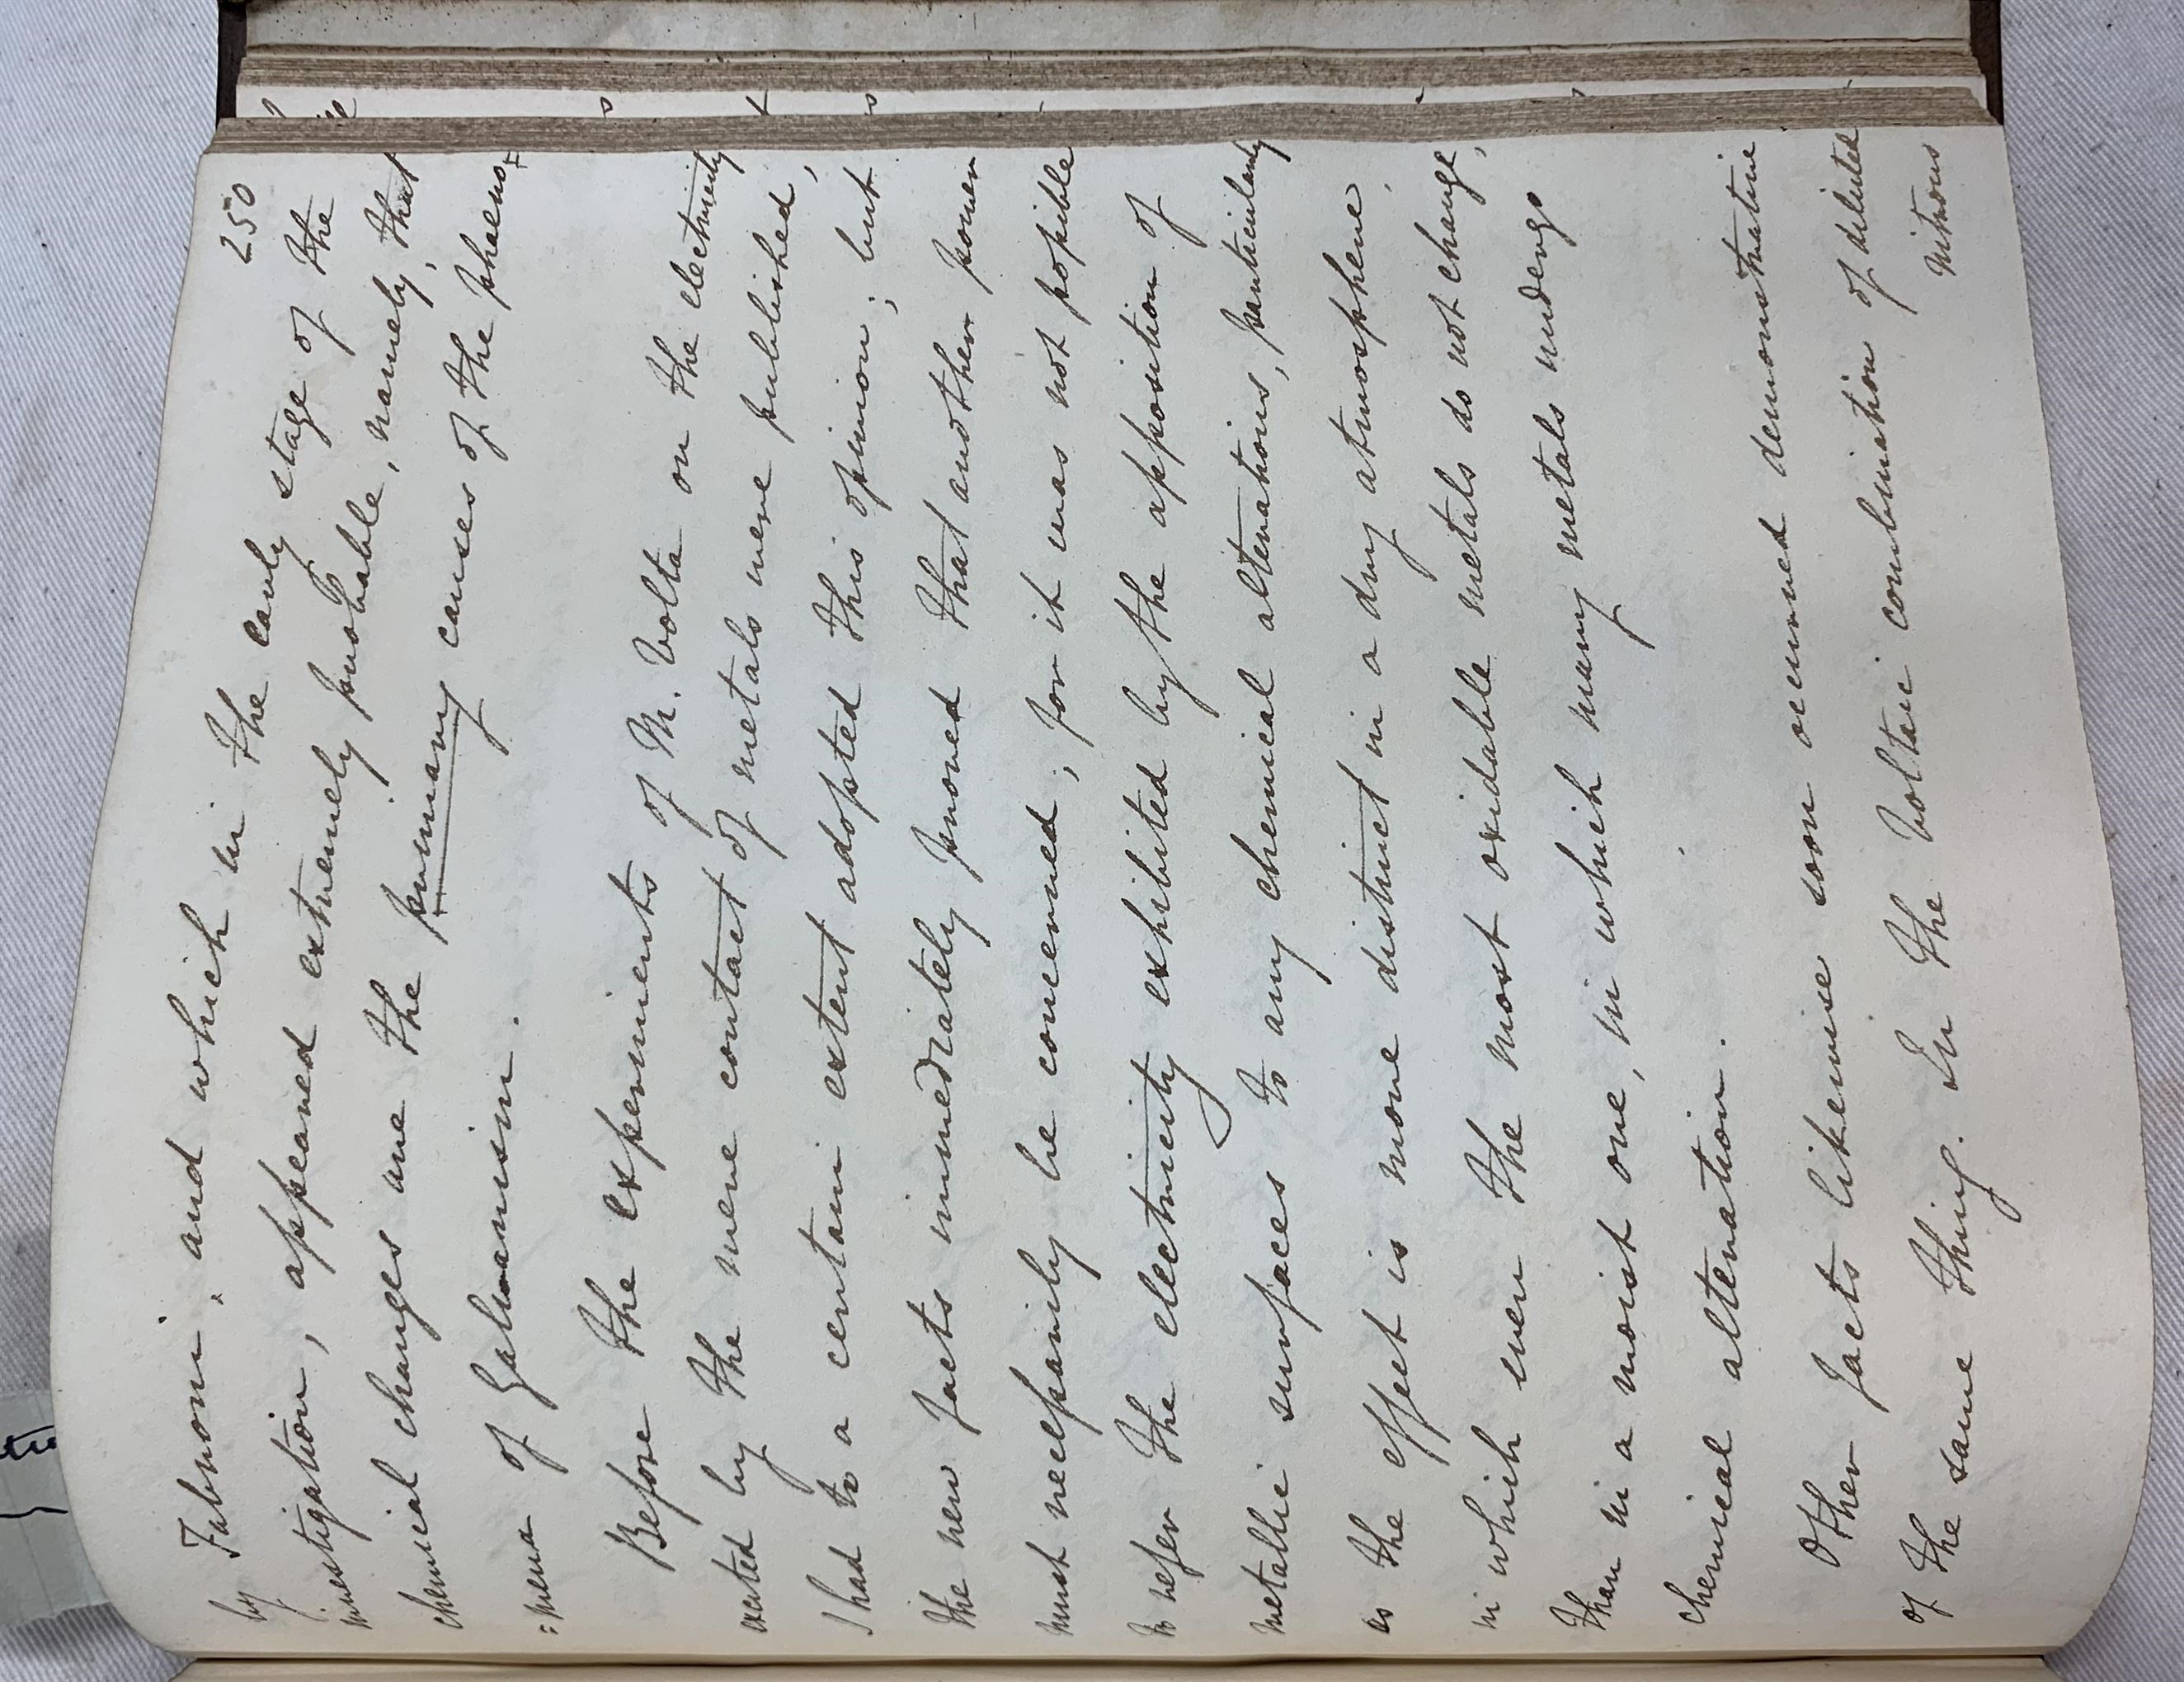 250
by Fabroni, and which in the early stage of the
investigation, appeared extremely probable, namely, that
chemical changes are the primary causes of the phaeno-
:mena of Galvanism.
Before the experiments of M. Volta on the electricity
excited by the mere contact of metals were published,
I had to a certain extent adopted this opinion; but
the new facts immediately proved that another power
must necessarily be concerned; for it was not possible
to refer the electricity exhibited by the apposition of
metallic surfaces to any chemical alterations, particularly
as the effect is more distinct in a dry atmosphere,
in which even the most oxidable metals do not change,
than in a moist one, in which many metals undergo
chemical alteration.
Other facts likewise soon occurred demonstrative
of the same thing. In the Voltaic combination of diluted
nitrous